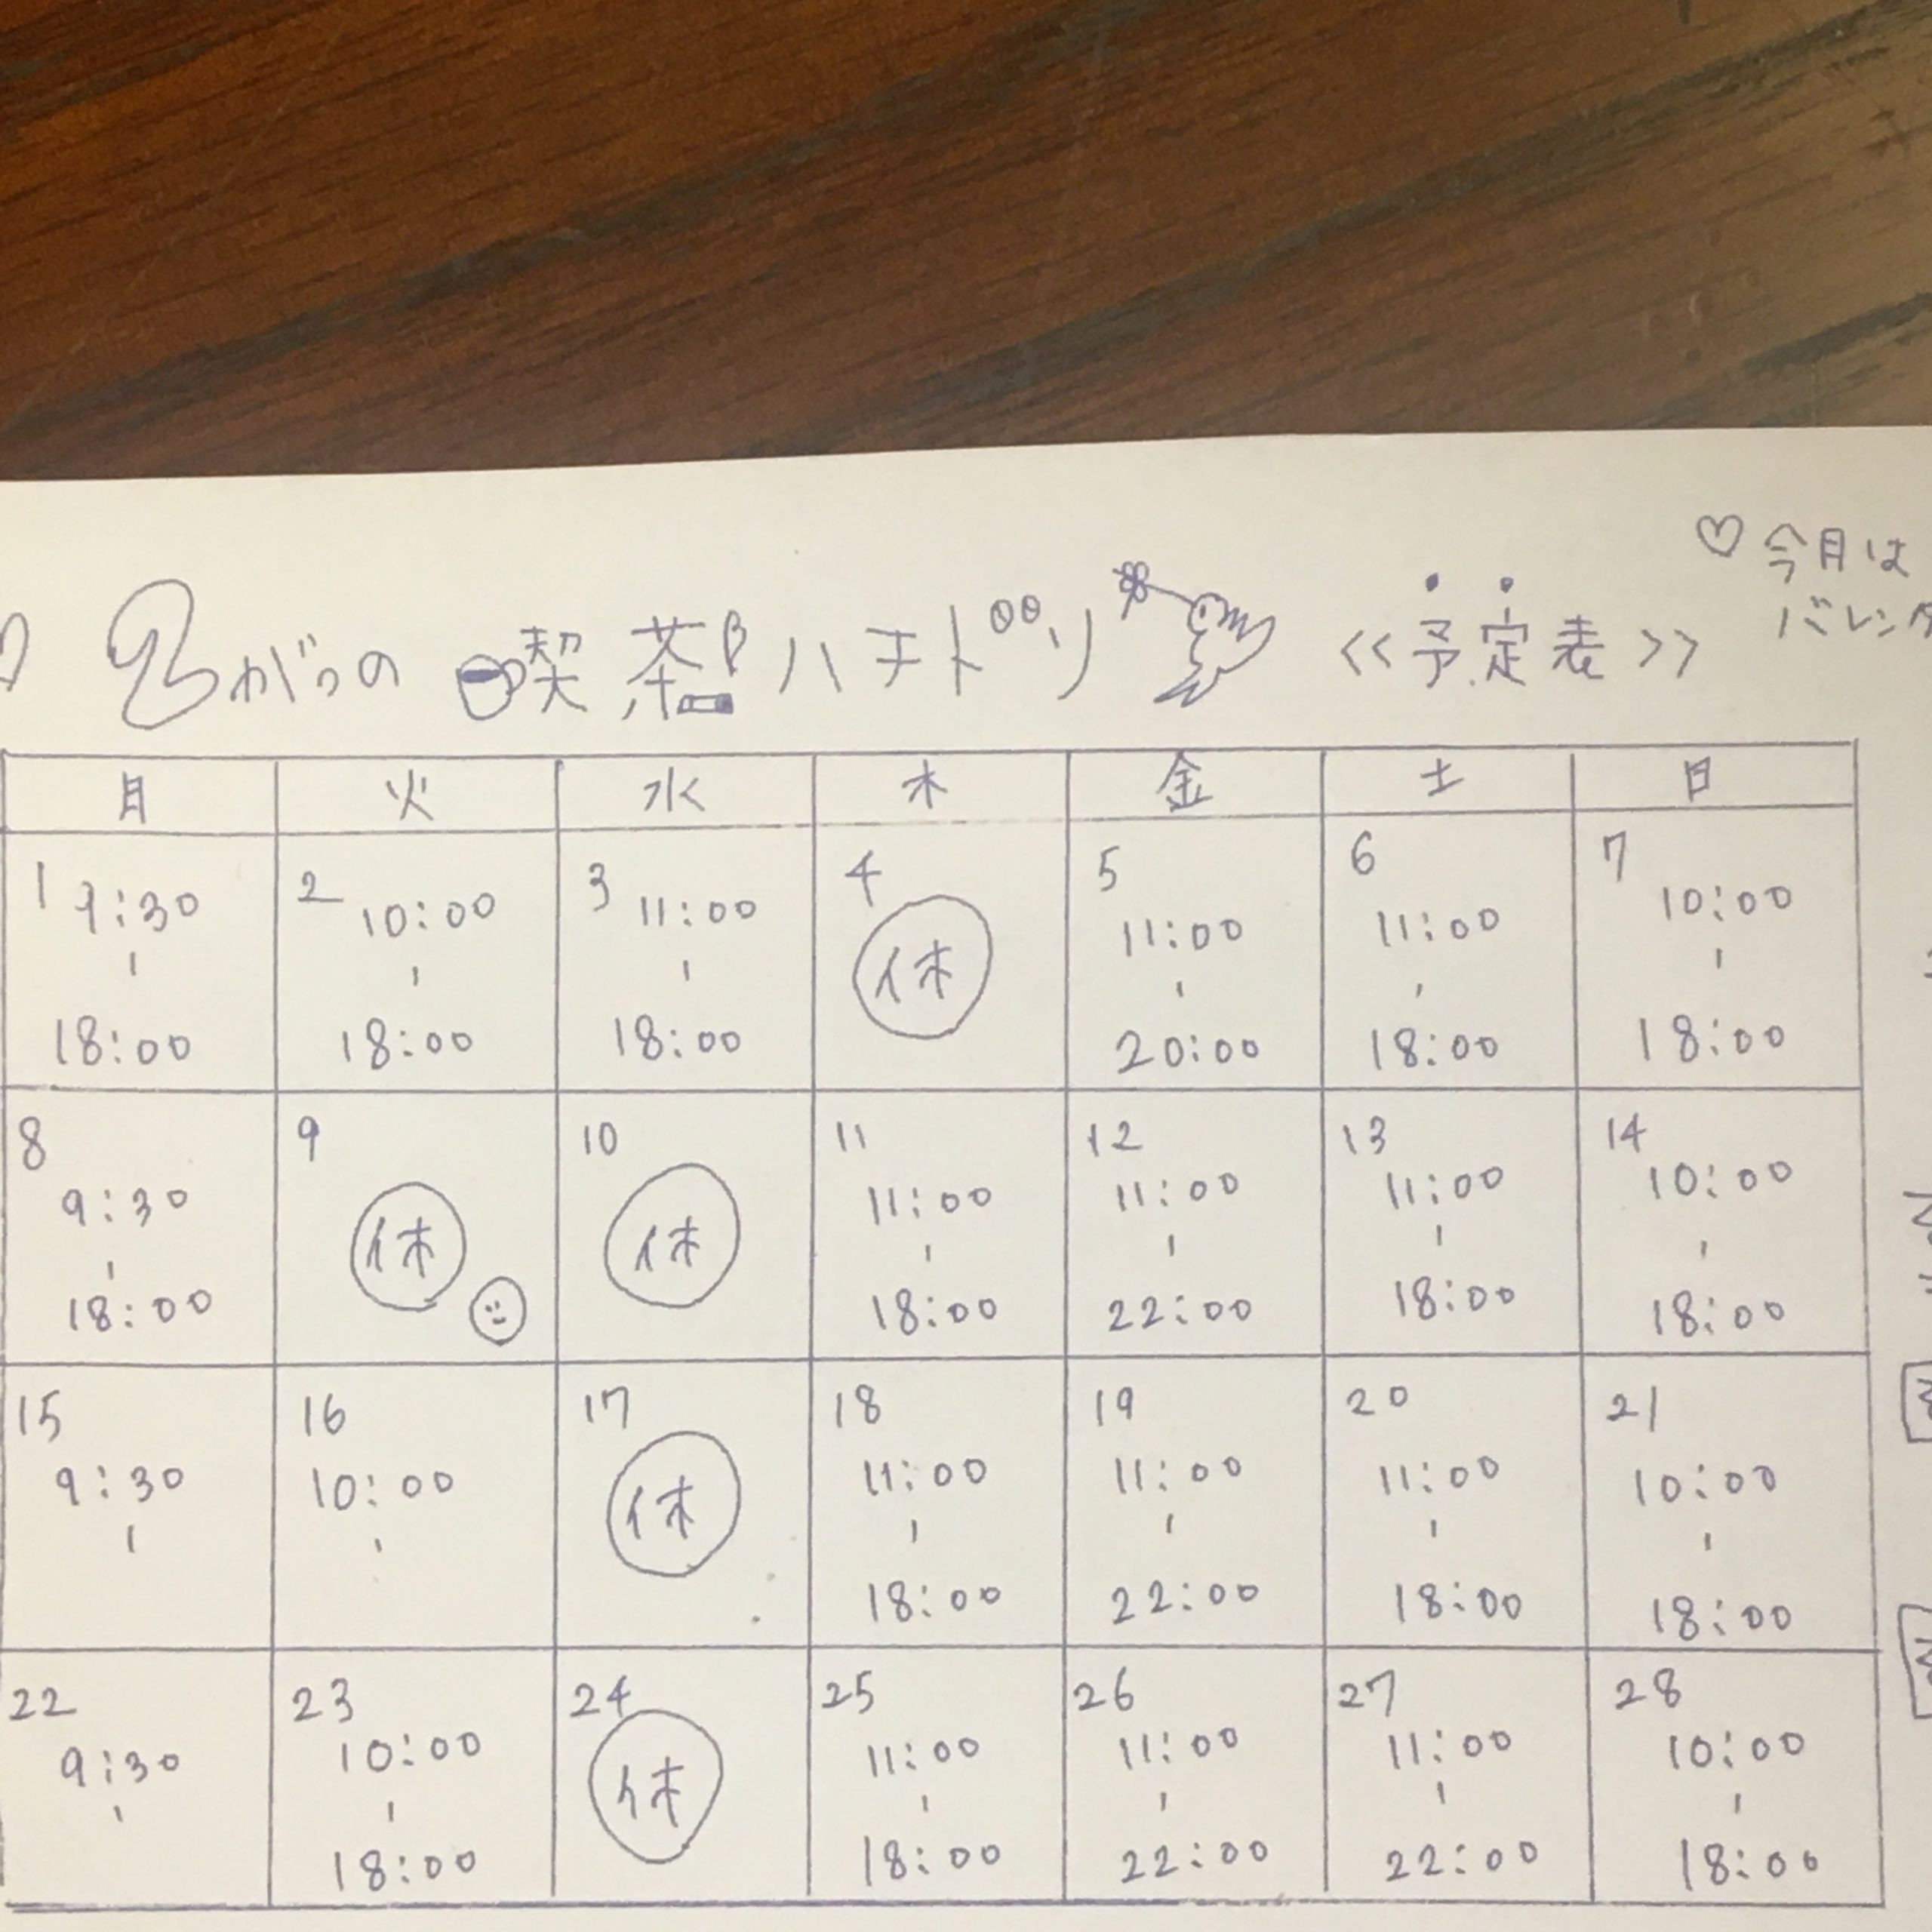 ♡今月は
バレンタ
2がつの喫茶ハチドリ <<予定表>>
月 火 水 木 金 土 日
1 2 3 4 5 6 7
9:30 10:00 11:00 休 11:00 11:00 10:00
18:00 18:00 18:00 20:00 18:00 18:00
8 9 10 11 12 13 14
9:30 休 休 11:00 11:00 11:00 10:00
18:00 18:00 22:00 18:00 18:00
15 16 17 18 19 20 21
9:30 10:00 休 11:00 11:00 11:00 10:00
18:00 22:00 18:00 18:00
22 23 24 25 26 27 28
9:30 10:00 休 11:00 11:00 11:00 10:00
18:00 18:00 22:00 22:00 18:00